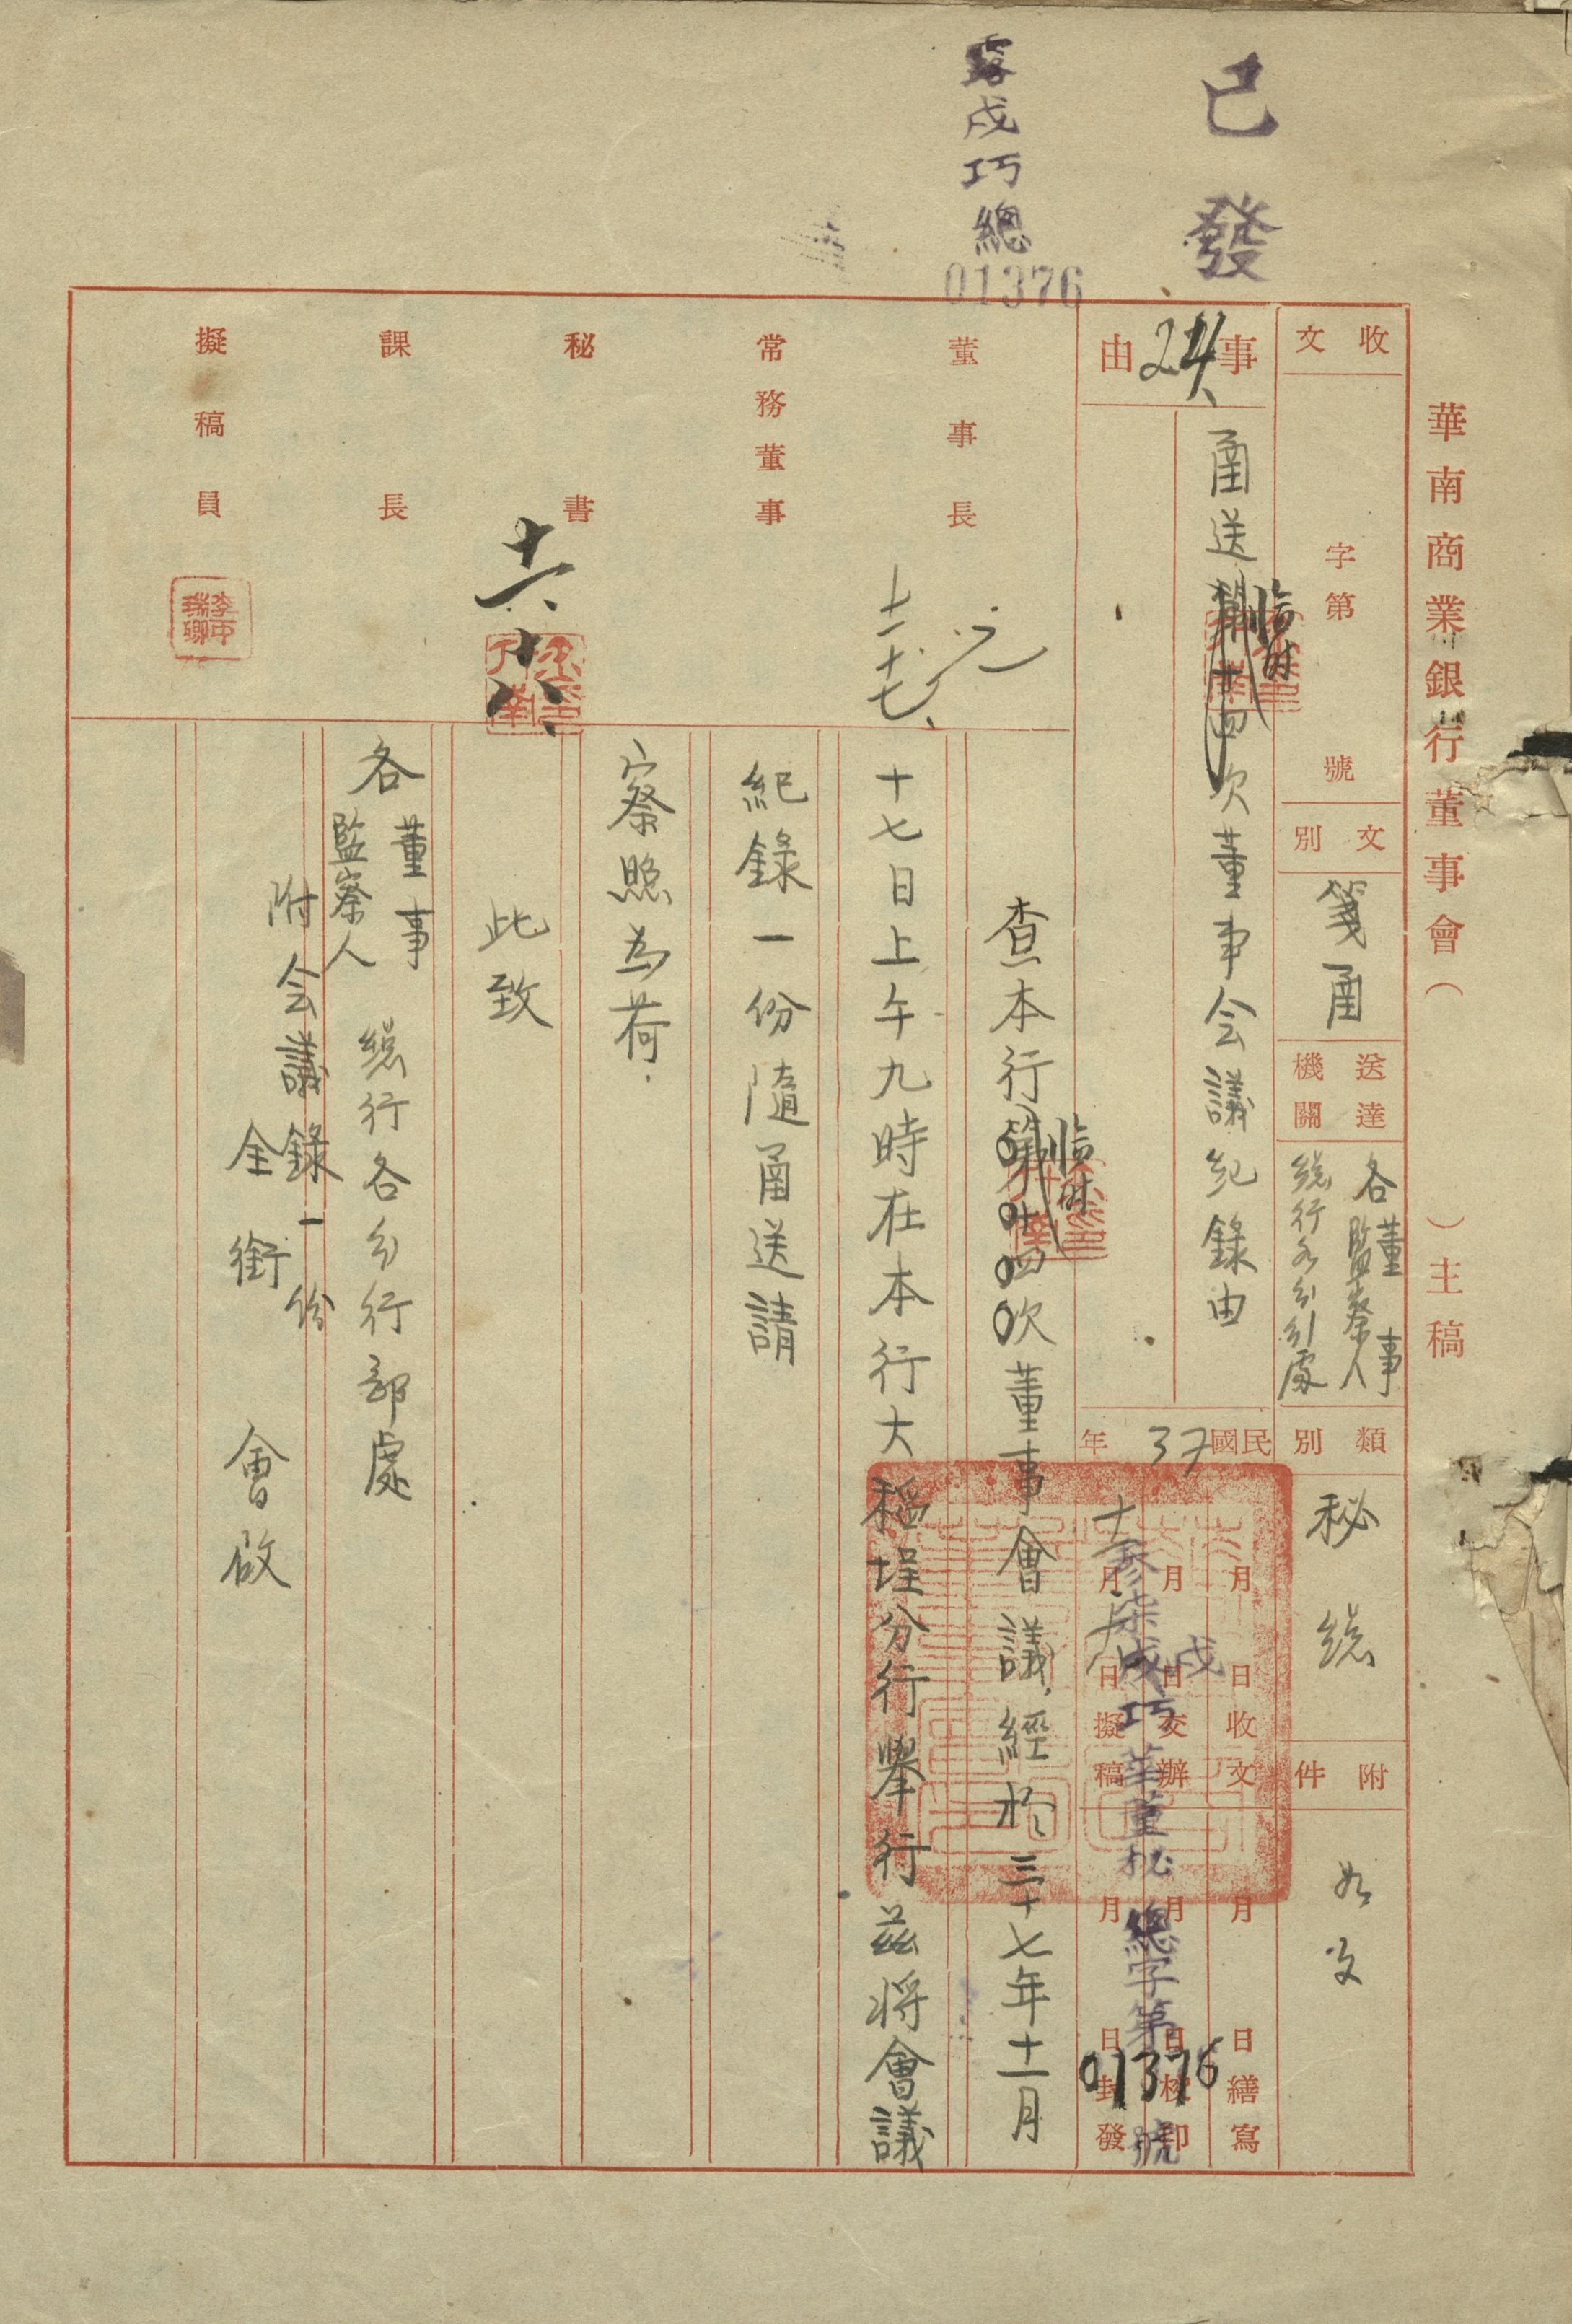 已發
戌巧總
01376
華南商業銀行董事會（　　）主稿
收文
字第　　號
文別
箋函
送達機關
各董事
監察人
總行各分行處
類別
秘總
附件
如文
事由
24
函送臨時第廿四次董事会議紀錄由
民國37年
月　日收文
月　日交辦
月　日擬稿
月　日繕寫
月　日校印
月　日封發
參柒戌巧華董秘總字第01376號
戌
董事長
十一、十七、
常務董事
秘書
十一、十八、
課長
擬稿員
查本行臨時第廿四次董事會議，經於三十七年十一月
十七日上午九時在本行大稻埕分行舉行茲將會議
紀錄一份隨函送請
察照為荷．
此致
各董事
監察人
總行各分行部處
附会議錄一份
全銜　會啟